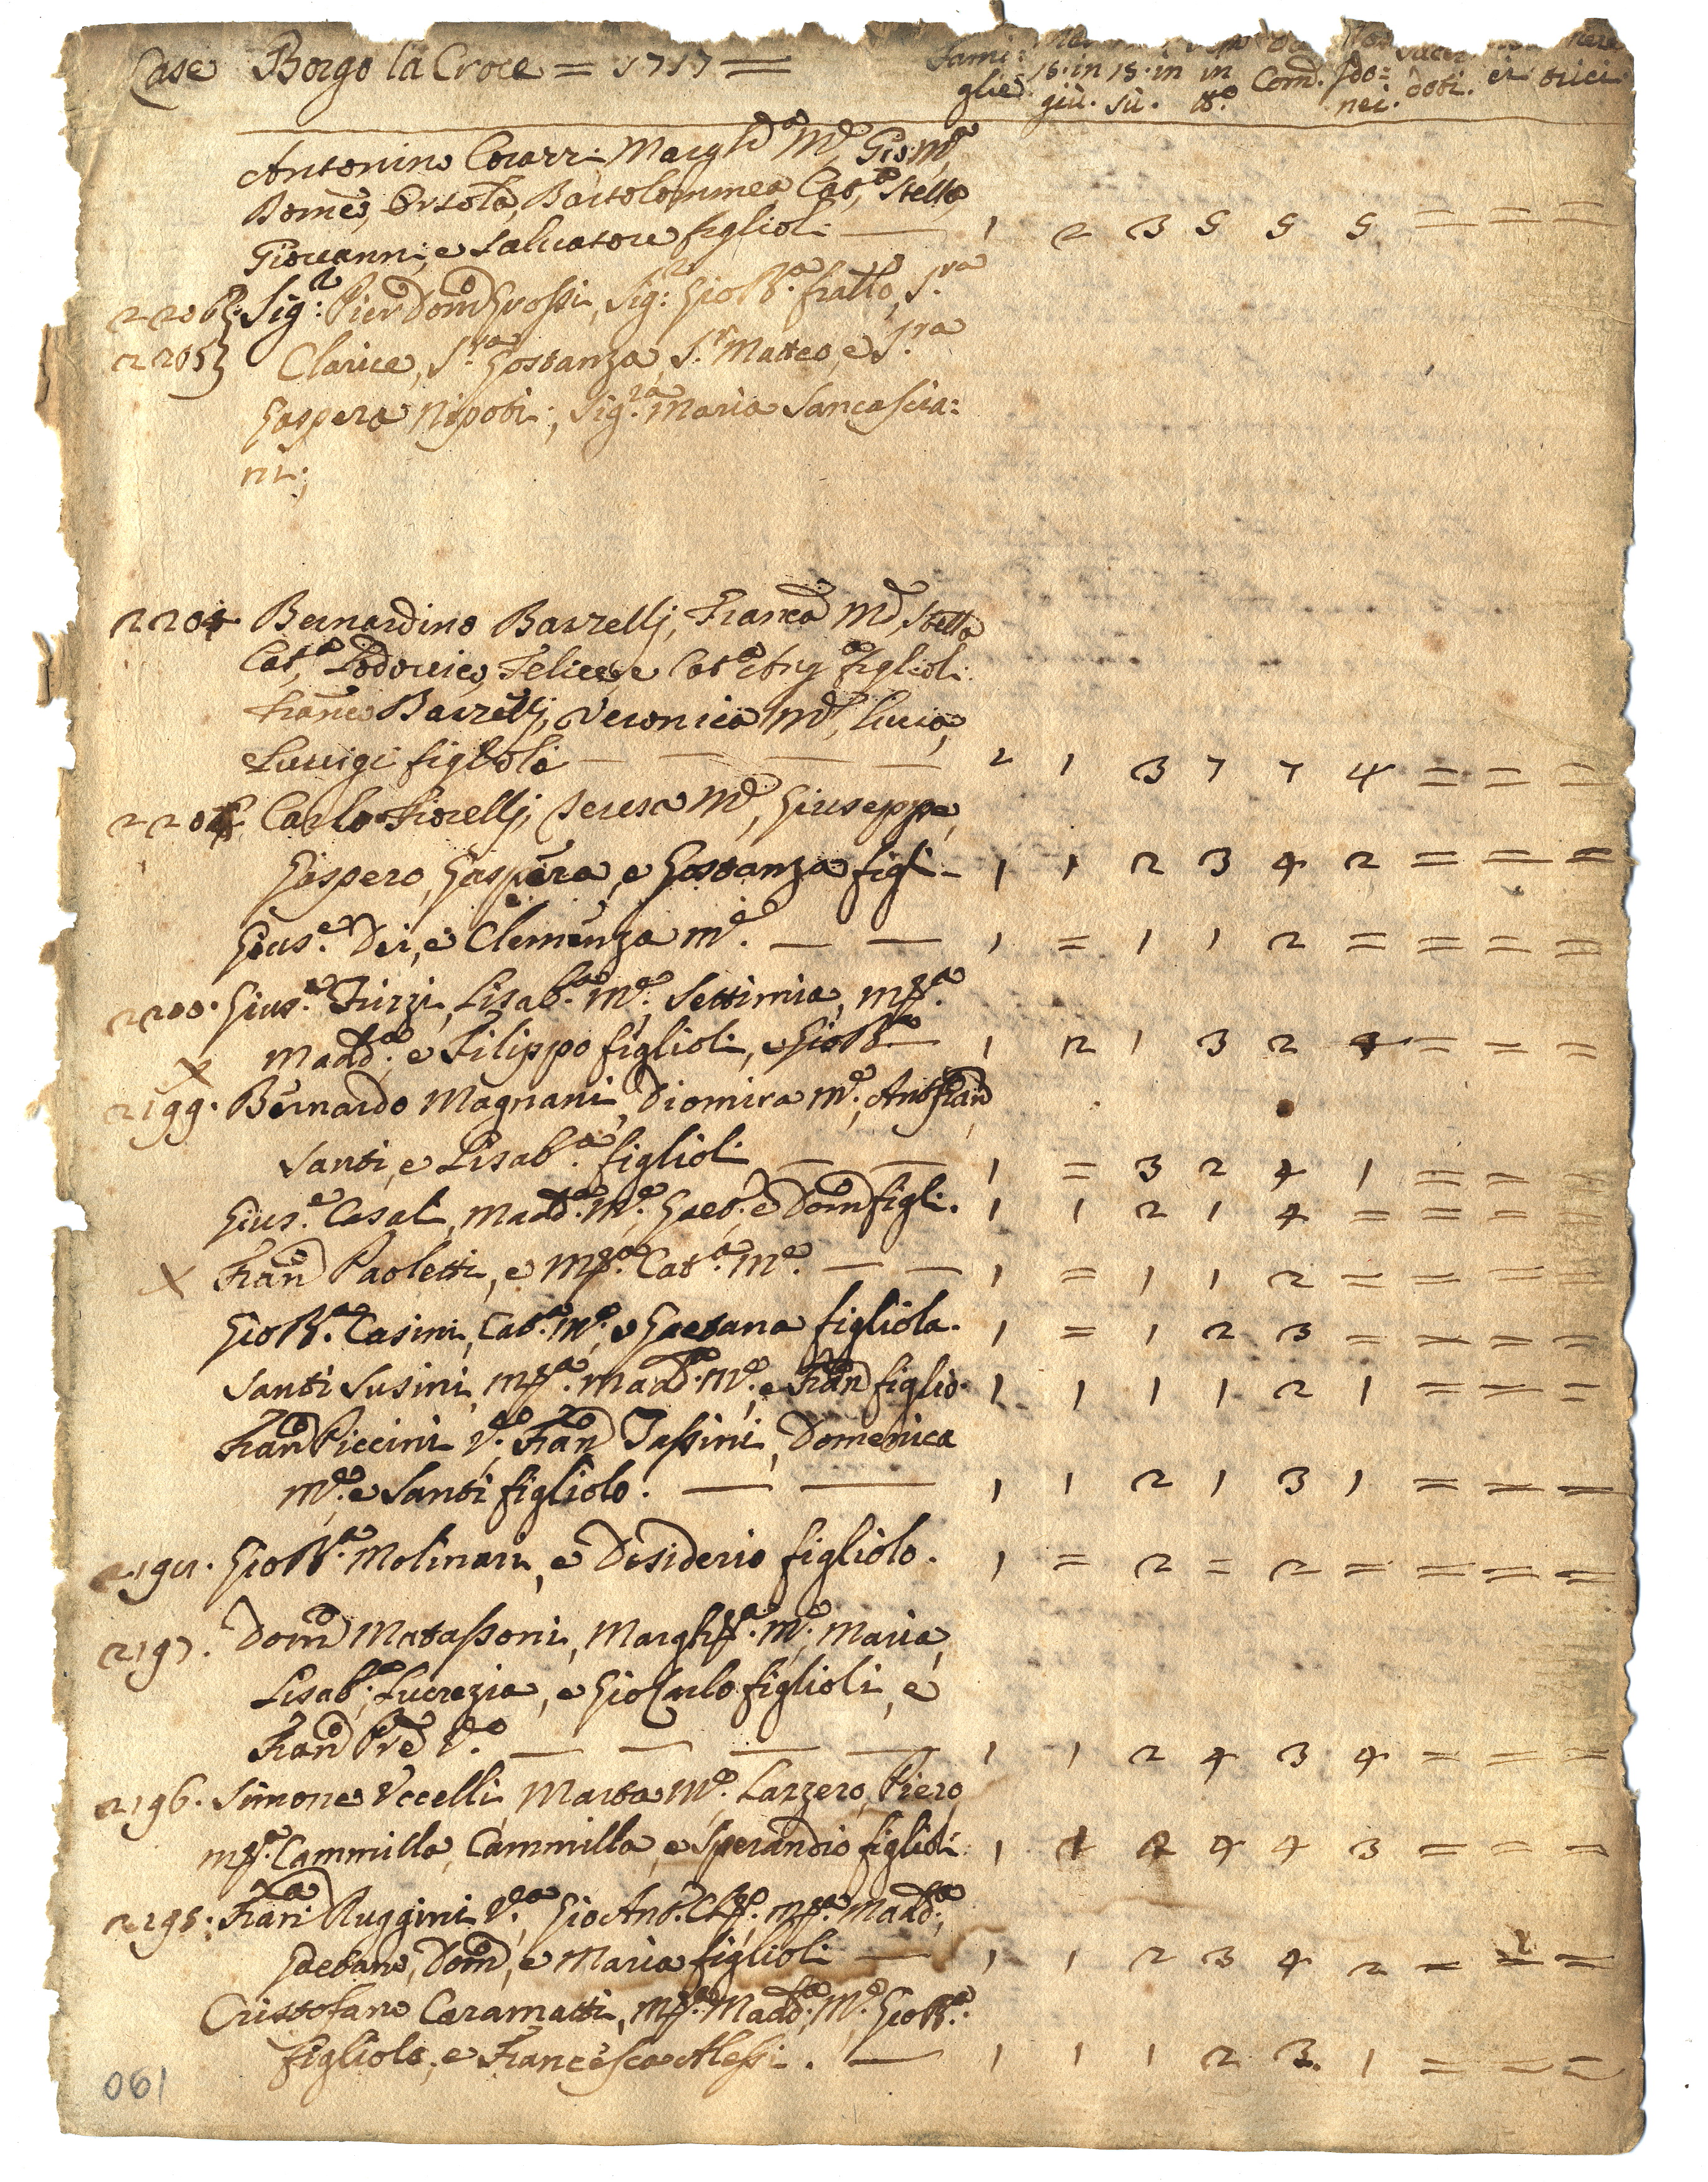 Case Borgo la Croce = 1717 = Fami: glie. 18. in giù. 18. in sù. in tt.o Com. Ido: nei. doti. ei trici
Antonino Corazzi Margh.ta M.e, Gio: M.a
Dom.co, Orsola, Bartolommea Cat.a, Stella,
Giovanni, e Salvatore figlioli — 1 2 3 5 5 5 = = =
Sig.r Pier Dom.co Grossi, Sig.r Gio B.a fratto, S.ra
2205 Clarice, S.ra Gostanza, S.r Matteo, e S.ra
Gaspera Nipoti; Sig.ra Maria Sancascia:
ni;
2204 Bernardino Barzelli, Franca M.e, Stella
Cat.a, Lodovico, Felice, e Cat.a Ang.a figlioli
Franco Barzelli, Veronica M.e, Lucia,
e Luuigi figlioli — — — — 2 1 3 7 7 4 = = =
Carlo Fiorelli, Teresa M.e, Giuseppe,
Gaspero, Gaspera, e Gostanza figli — 1 1 2 3 4 2 = = =
Gius.e Dei, e Clemenza m.e. — — 1 = 1 1 2 = = = =
2200. Gius.e Turzi, Lisab.a m.e, Settimia, m.a
Madd.a, e Filippo figlioli, e Gio B.a — 1 2 1 3 2 4 = = =
X
2199. Bernardo Magnani, Diomira m.e, Ant.o Fran.co
Santi, e Lisab.a figlioli — — 1 = 3 2 4 1 = = =
Gius.e Casali, Madd.a M.e, Gaet.o e Dom.co figli. 1 1 2 1 4 = = = =
X Fran.co Paoletti, e M.a Cat.a M.e. — — 1 = 1 1 2 = = = =
Gio B.a Casini, Cat.a M.e, e Gaetana figliola. 1 = 1 2 3 = = = =
Santi Susini, m.a Madd.a M.e, e Fran.co figlio. 1 1 1 1 2 1 = = =
Fran.co Piccini V.o, Fran.co Tassini, Domenica
M.e, e Santi figliolo. — — 1 1 2 1 3 1 = = =
Gio B.a Molinari, e Desiderio figliolo. 1 = 2 = 2 = = = =
2197. Dom.co Matassoni, Margh.ta M.e, Maria,
Lisab.a, Lucrezia, e Gio Carlo figlioli, e
Fran.co Pre V.o — — — — 1 1 2 4 3 4 = = =
2196. Simone Uccelli, Marta M.e, Lazzero, Piero,
m.a Cammilla, Cammilla, e Sperandio figlioli 1 1 2 4 4 3 = = =
2195. Fran.ca Ruggini V.a, Gio Ant.o m.a Madd.a,
Gaetano, Dom.co, e Maria figlioli — 1 1 2 3 4 2 = = =
Cristofano Caramatti, M.a Madd.a M.e, Gio B.a
figliolo, e Francesco Alessi. — 1 1 1 2 3. 1 = = =
061